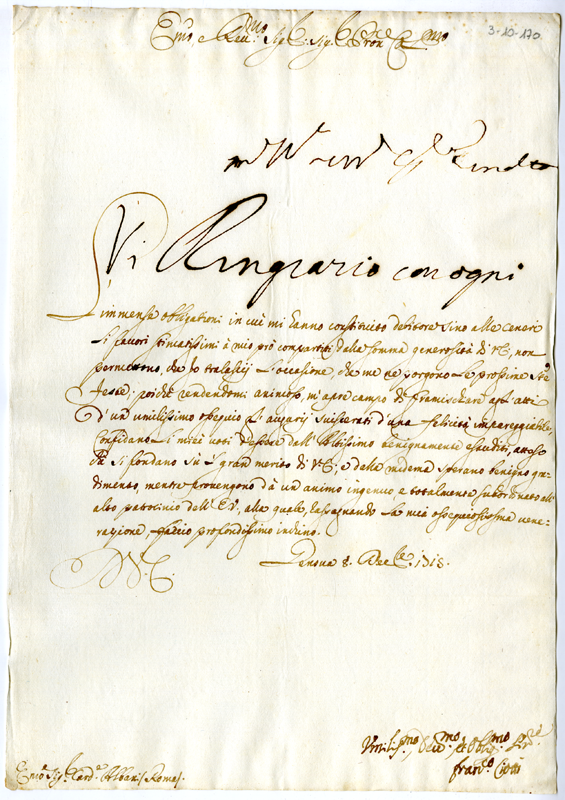 Emo, e Reu.mo Sig.re Sig.re Pron Col.mo
3-10-170
Vi Ringrazio con ogni
immense obligationi in cui mi hanno constituito debitore sino alle ceneri
li fauori stimatissimi à mio prò compartiti dalla somma generosità di V.E., non
permettono, che io tralascij l'occasione, che me ne porgono le prossime Ste
Feste; poiche rendendomi animoso, mi apre campo di framischiare agl'atti
d'un umilissimo ossequio gl'augurij suiscerati d'una felicità impareggiabile,
Confidano i miei uoti d'essere dall'Altissimo benignamente esauditi, atteso
che si fondano sù 'l gran merito di V.E., e dalla medema sperano benigno gra-
dimento, mentre prouengono dà un animo ingenuo e totalmente subordinato all'
alto patrocinio dell'E.V., alla quale, rassegnando la mia ossequiosissima uene-
razione, faccio profondissimo inchino.
D.V.E. Genoua 8. Dec.re 1718.
Umiliss.mo, Deu.mo, et Obblig.mo Ser.re
Fran.co
Emo Sig.r Card.e Albani (Roma).